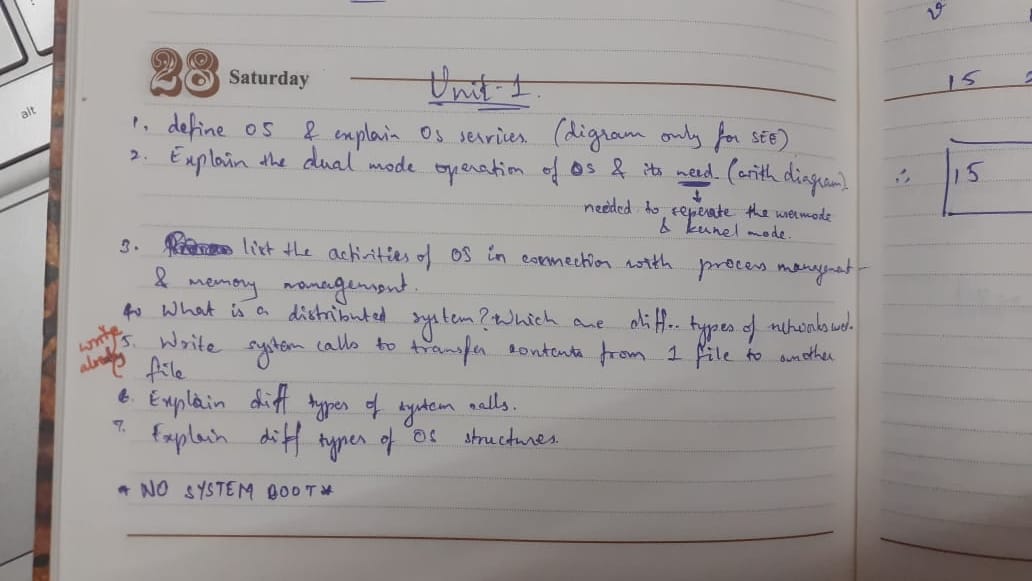 alt
28 Saturday
Unit-1.
1. define OS & explain OS services. (digram only for SEE)
2. Explain the dual mode operation of OS & its need. (with diagram)
needed to seperate the usermode
& kernel mode.
3. list the activities of OS in connection with process
& memory management.
4. What is a distributed system? Which are diff.. types of networks used.
write already
5. Write system calls to transfer contents from 1 file to another
file
6. Explain diff types of system calls.
7. Explain diff types of OS structures.
* NO SYSTEM BOOT *
15
∴ 15